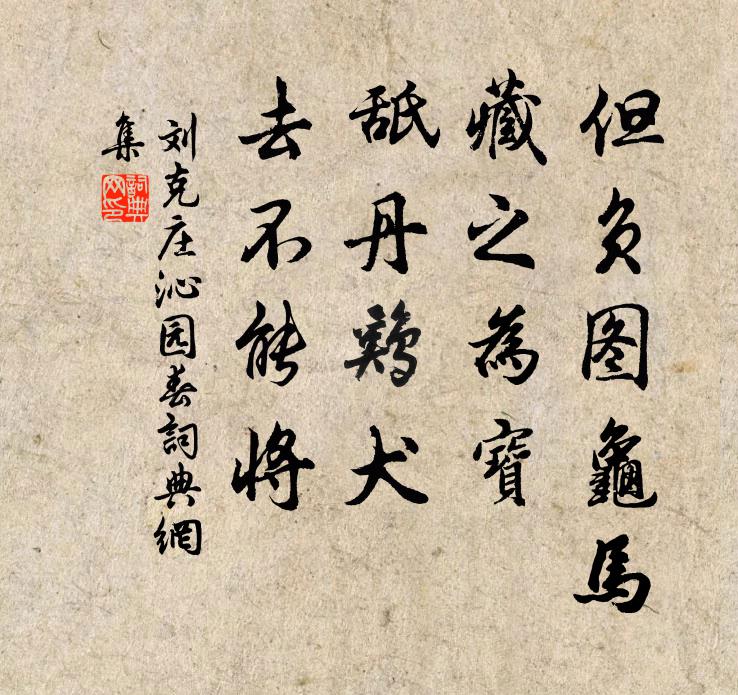 但负图龜馬
藏之為寶
舐丹鷄犬
去不能将
刘克庄沁园春詞典網
集
詞典
网印